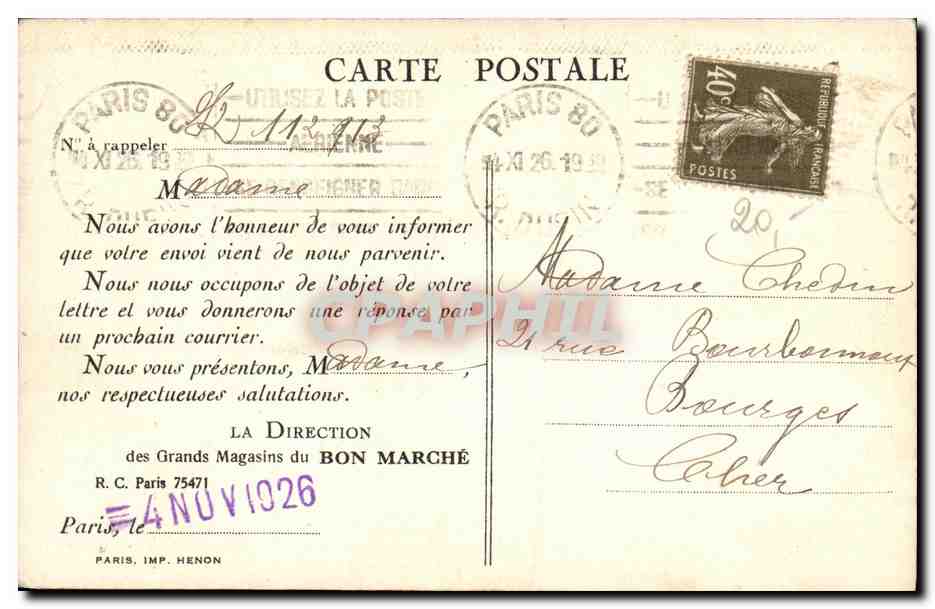 CARTE POSTALE
PARIS 80
UTILISEZ LA POSTE
AÉRIENNE
XI 26. 19
PARIS 80
4 XI 26. 19
RÉPUBLIQUE FRANÇAISE
40c
POSTES
20
Nos à rappeler
Madame
Nous avons l'honneur de vous informer
que votre envoi vient de nous parvenir.
Nous nous occupons de l'objet de votre
lettre et vous donnerons une réponse par
un prochain courrier.
Nous vous présentons, Madame,
nos respectueuses salutations.
LA DIRECTION
des Grands Magasins du BON MARCHÉ
R. C. Paris 75471
Paris, le
=4 NOV 1926
PARIS, IMP. HENON
Madame Chedin
21 rue Bourbonnoux
Bourges
Cher
CPAPHIL